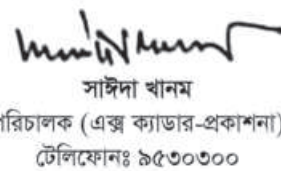 সাঈদা খানম
পরিচালক (এক্স ক্যাডার-প্রকাশনা)
টেলিফোনঃ ৯৫৩০৩০০